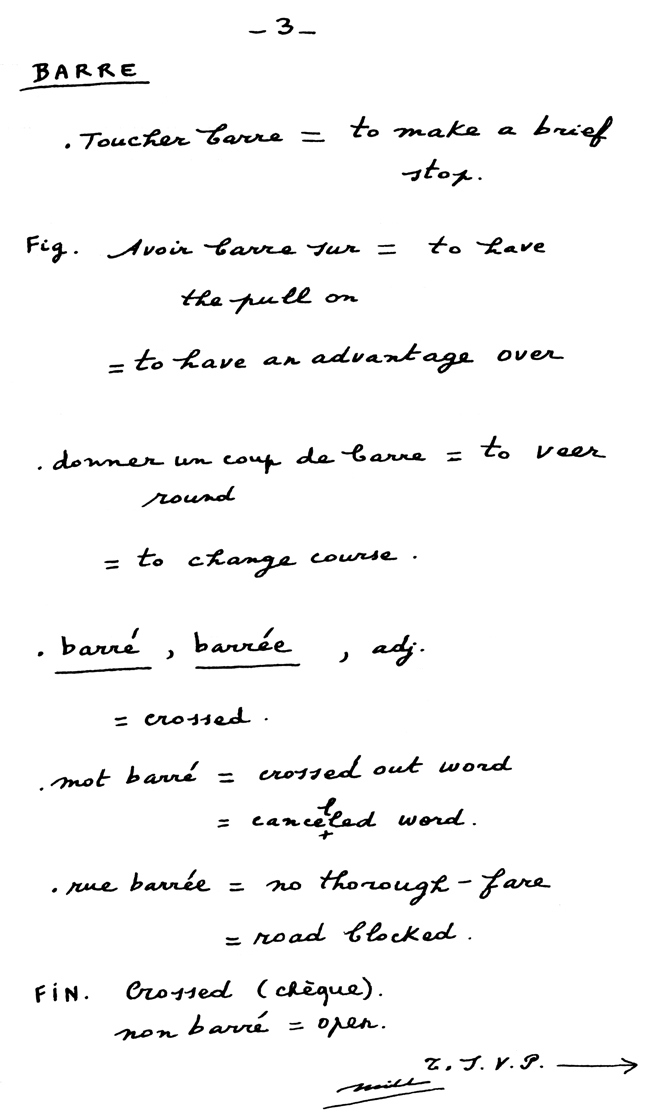 - 3 -
BARRE
. Toucher barre = to make a brief
stop.
Fig. Avoir barre sur = to have
the pull on
= to have an advantage over
. donner un coup de barre = to veer
round
= to change course .
. barré , barrée , adj.
= crossed .
. mot barré = crossed out word
= cancelled word .
. rue barrée = no thorough-fare
= road blocked .
FiN. Crossed (chèque).
non barré = open.
T. S. V. P. →